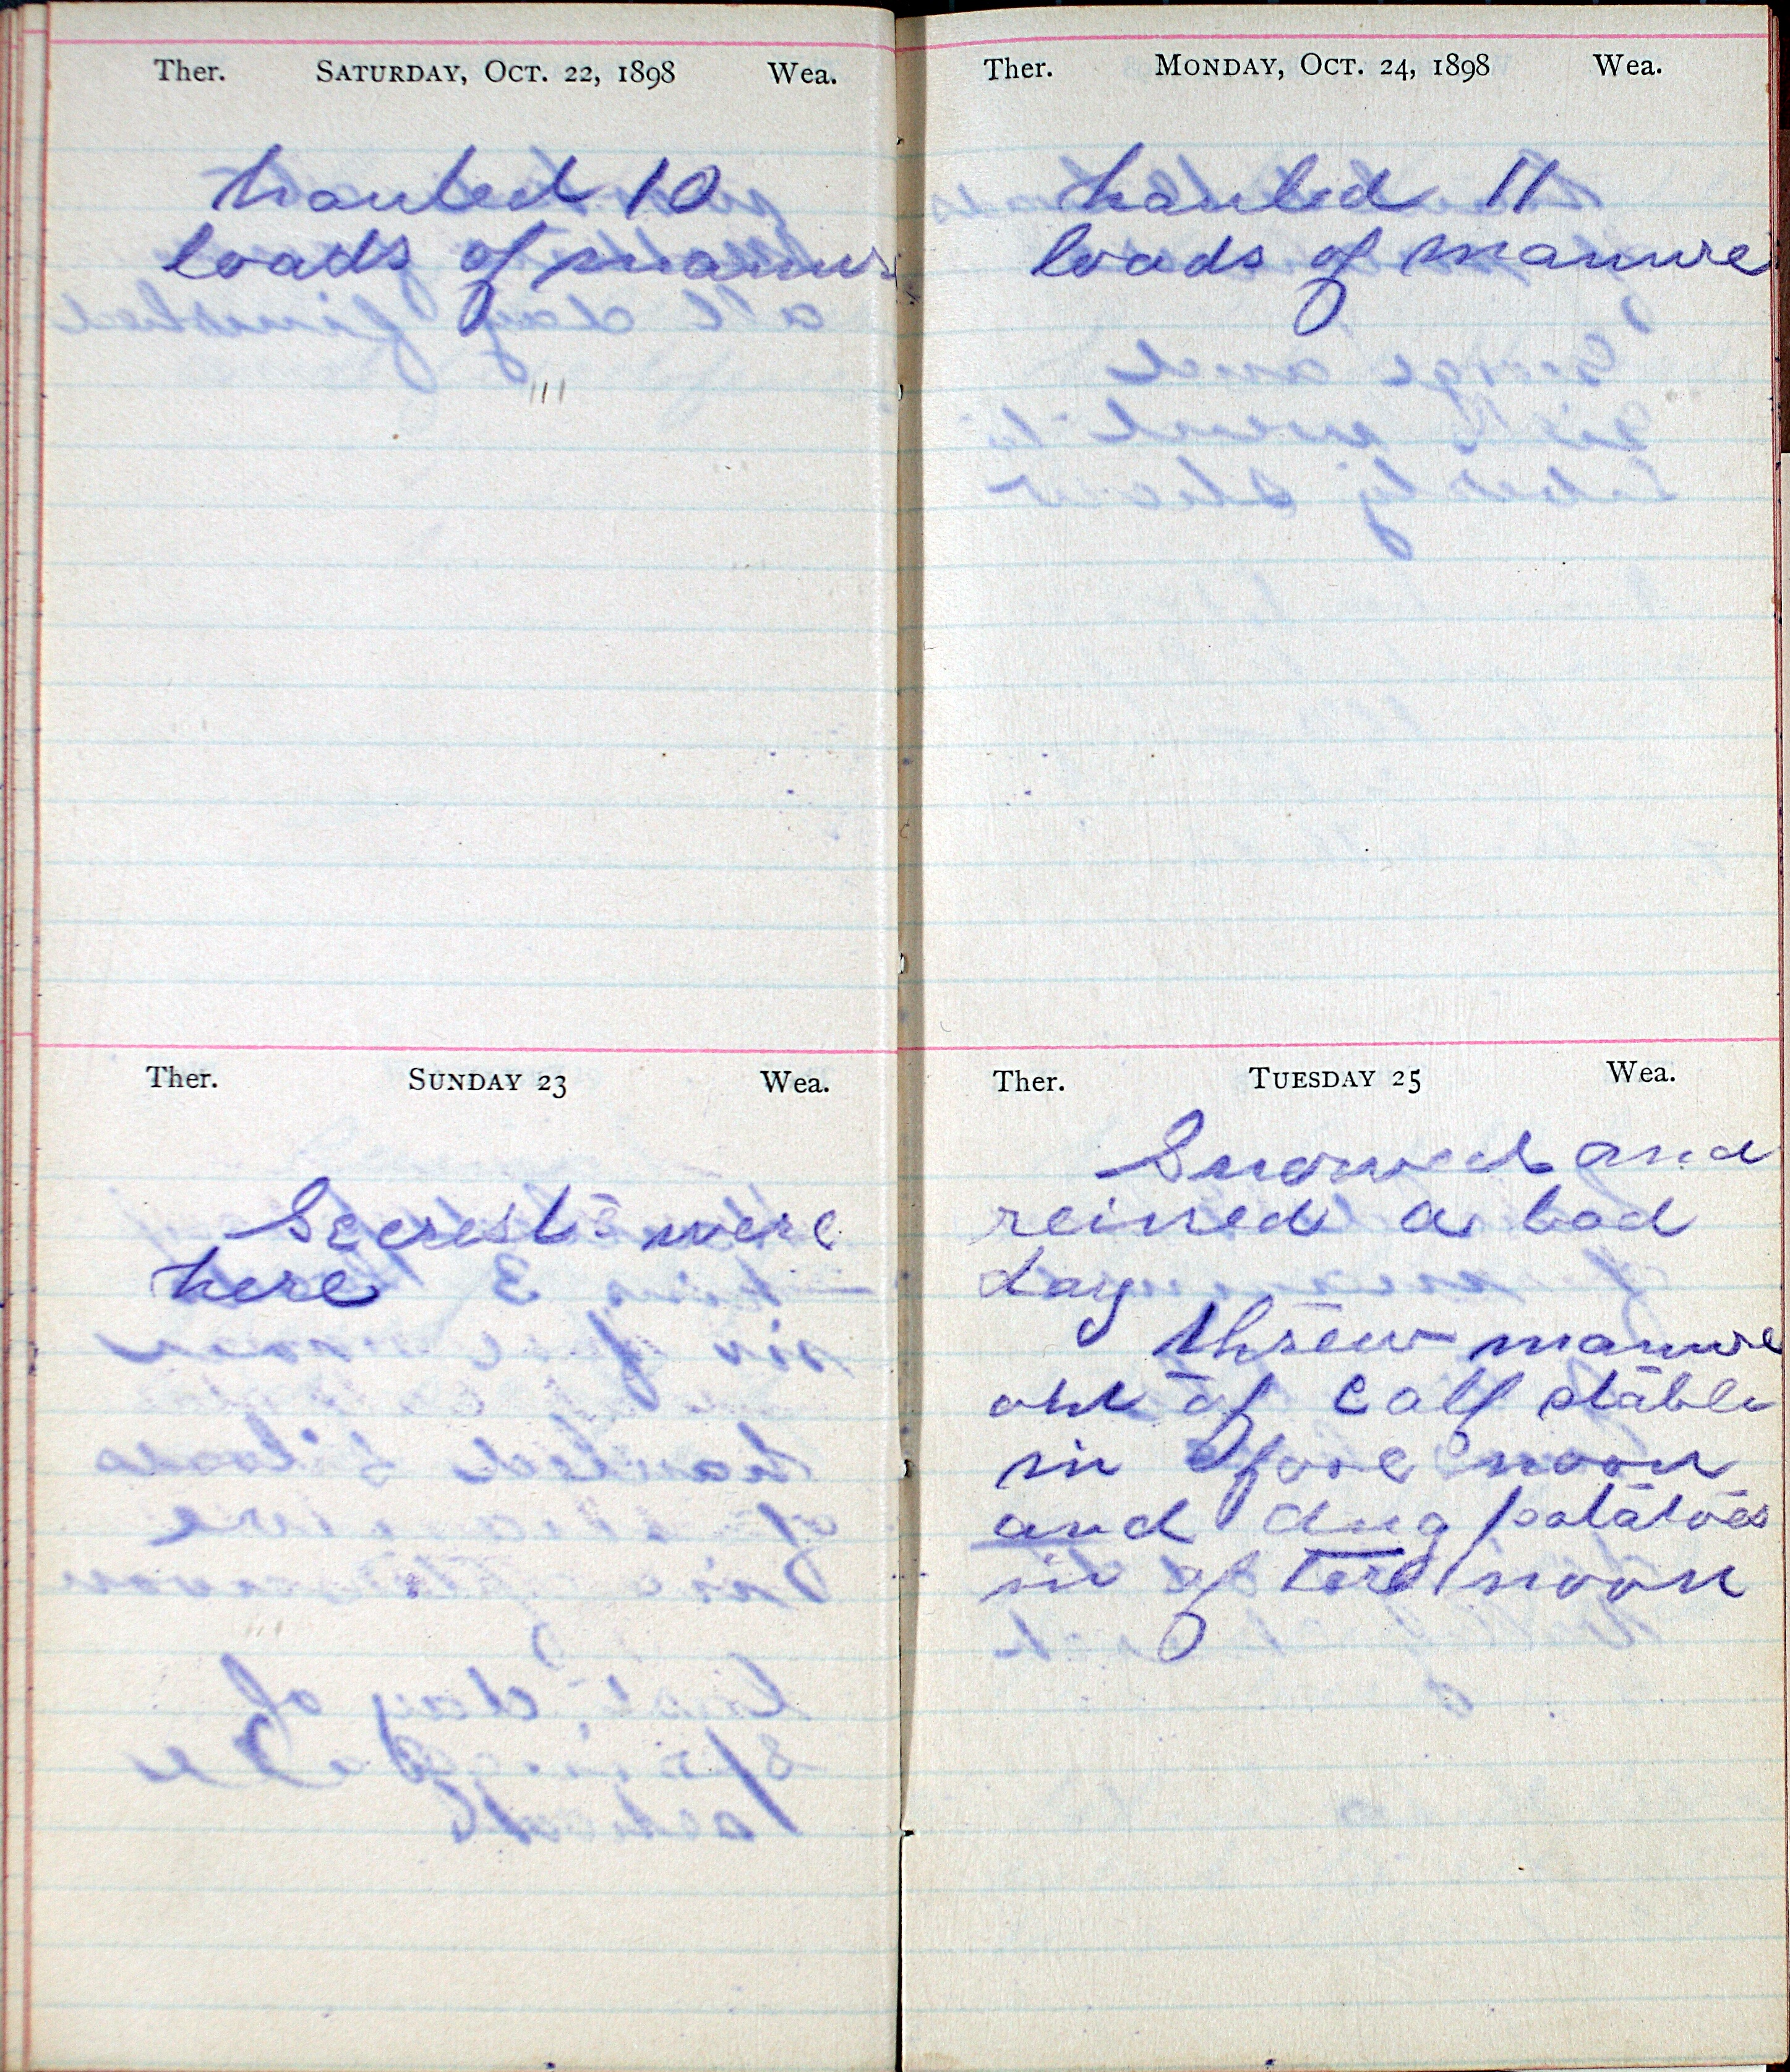 Ther. SATURDAY, OCT. 22, 1898 Wea.
hauled 10
loads of manure
Ther. SUNDAY 23 Wea.
Secrests were
here
Ther. MONDAY, OCT. 24, 1898 Wea.
hauled 11
loads of manure
Ther. TUESDAY 25 Wea.
Snowed and
reined a bad
day
threw manure
out of calf stable
in fore noon
and dug potatoes
in after noon